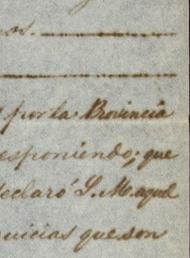 nos.
por la Provincia
esponiendo; que
declaró S. M. aquel
quicias que son